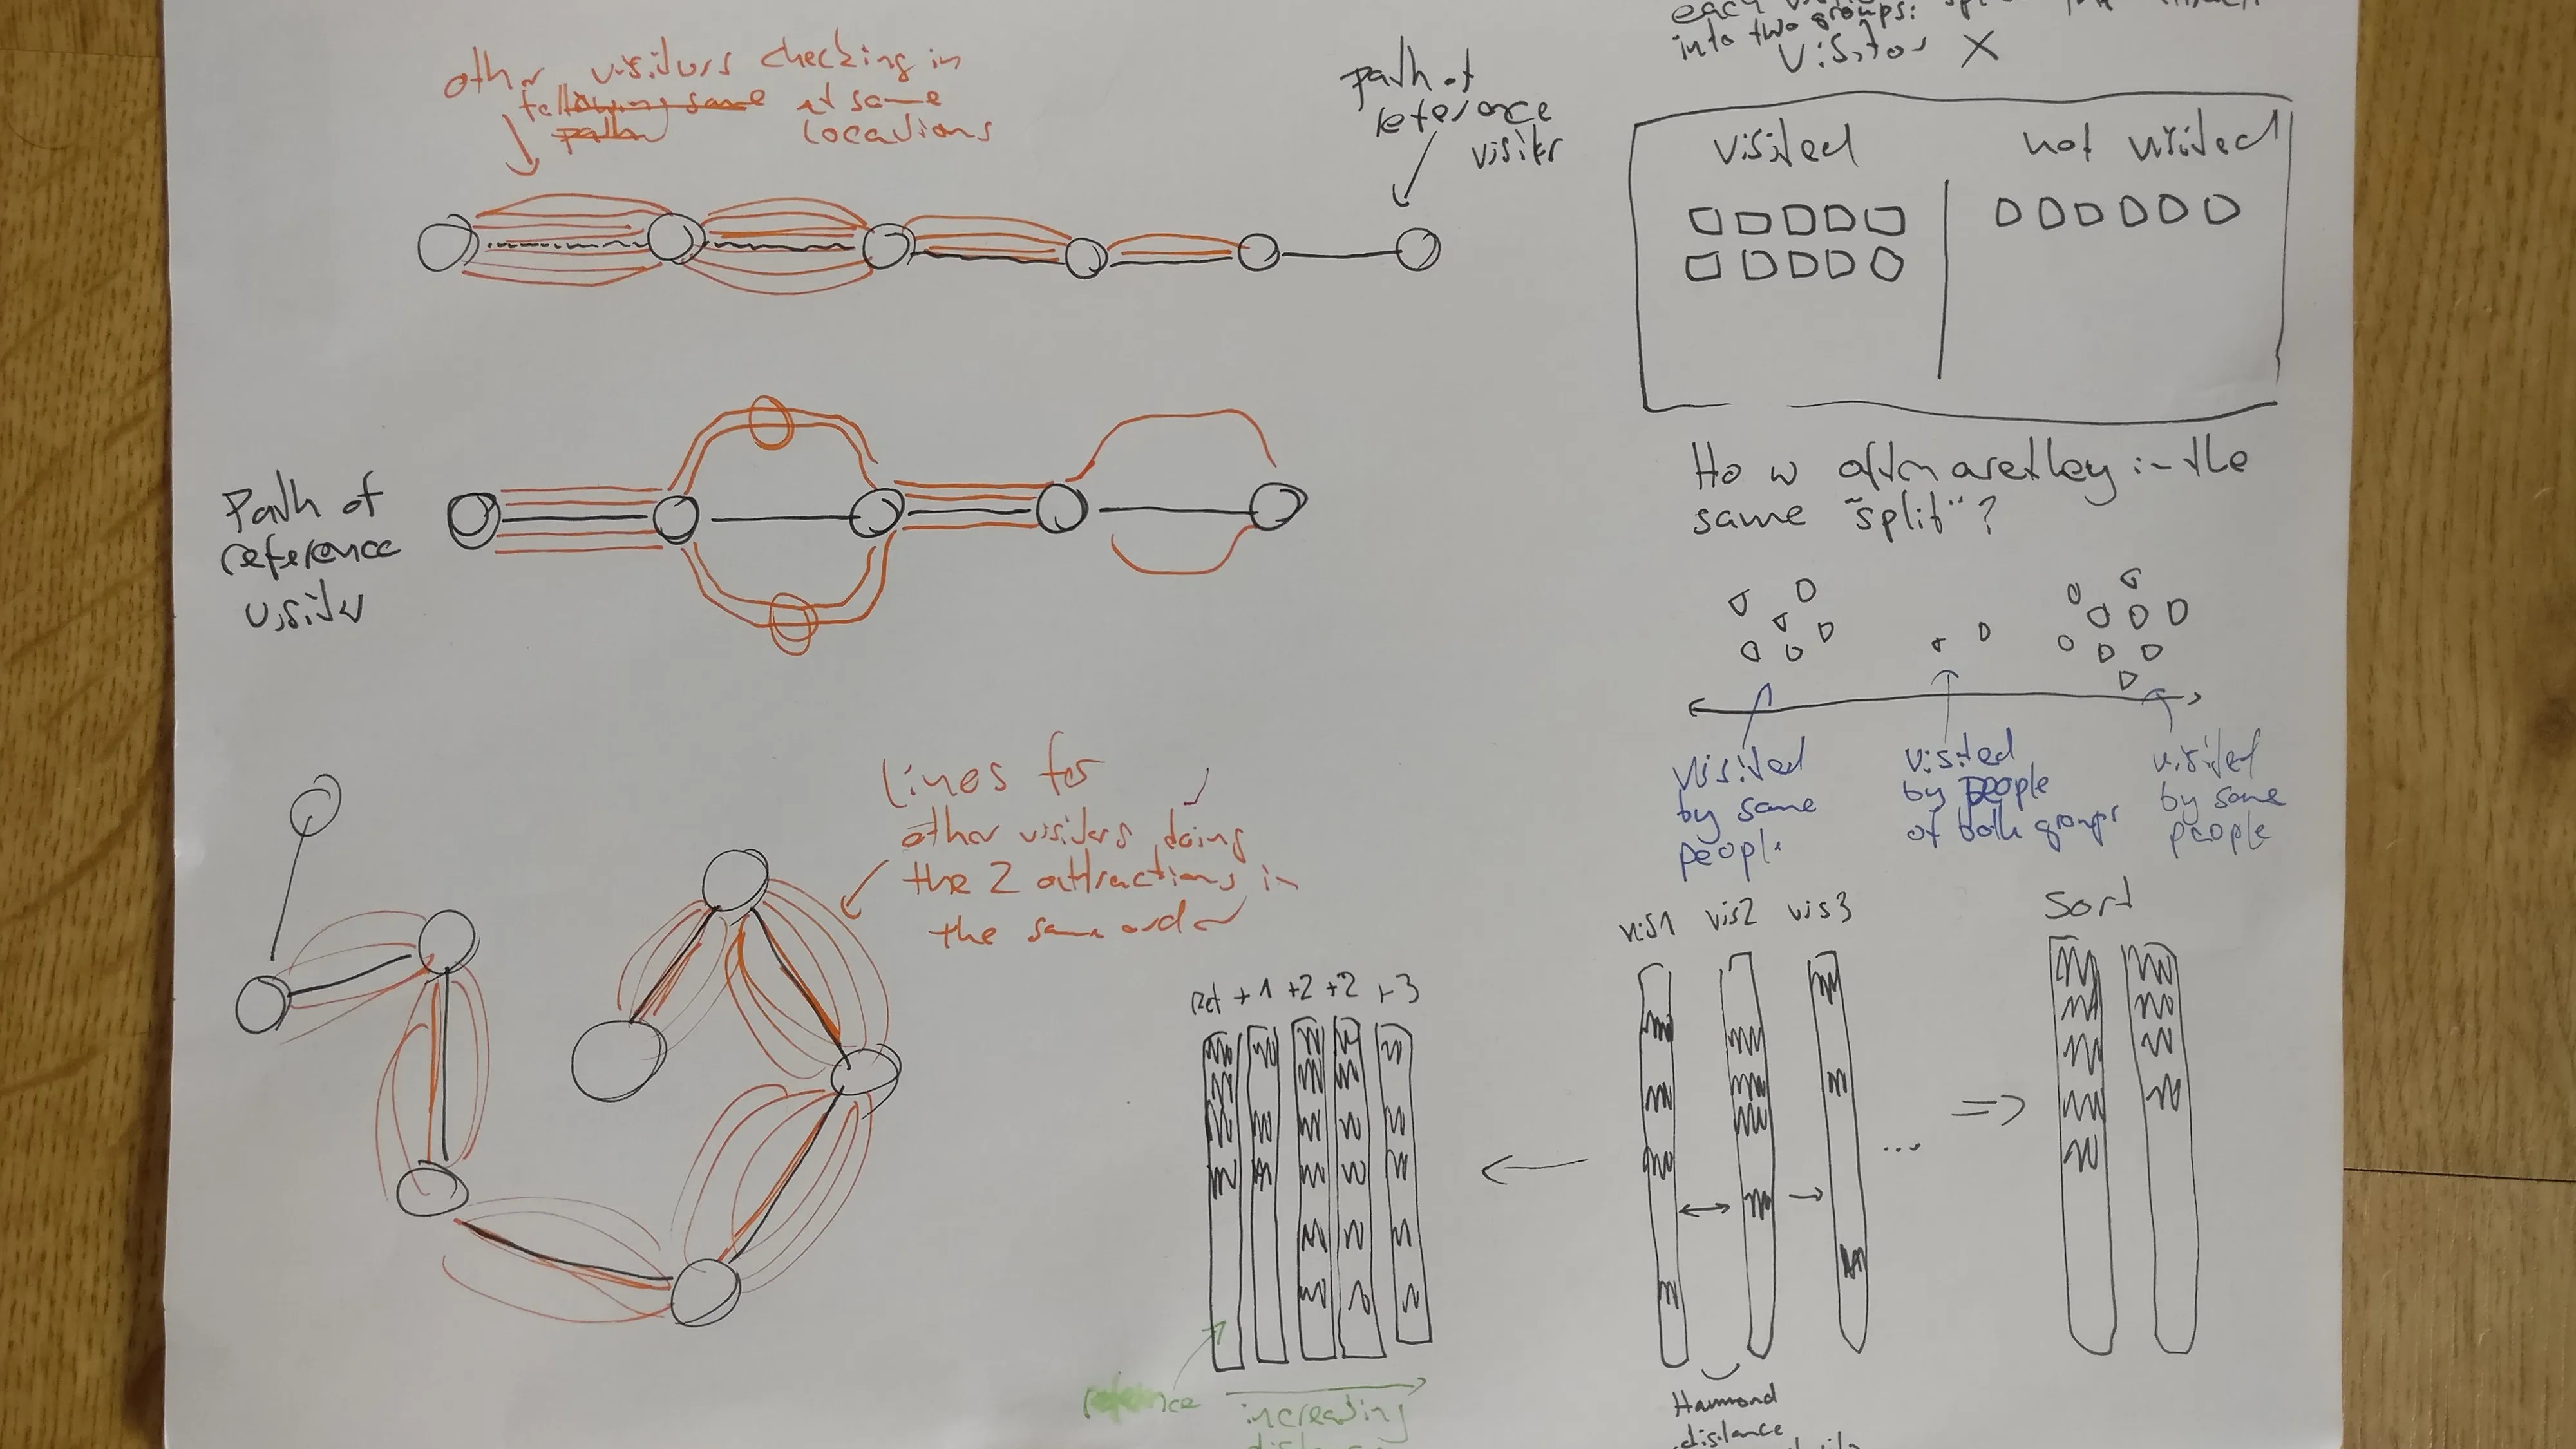 other visitors checking in
following same at same
path locations
path of
reference
visitor
each
into two groups:
Visitor X
visited not visited
How often are they in the
same "split"?
Path of
reference
visitor
visited
by same
people
visited
by people
of both groups
visited
by same
people
Lines for
other visitors doing
the 2 attractions in
the same order
vis1 vis2 vis3
Sort
Ref +1 +2 +2 +3
...
reference
increasing
Hammond
distance